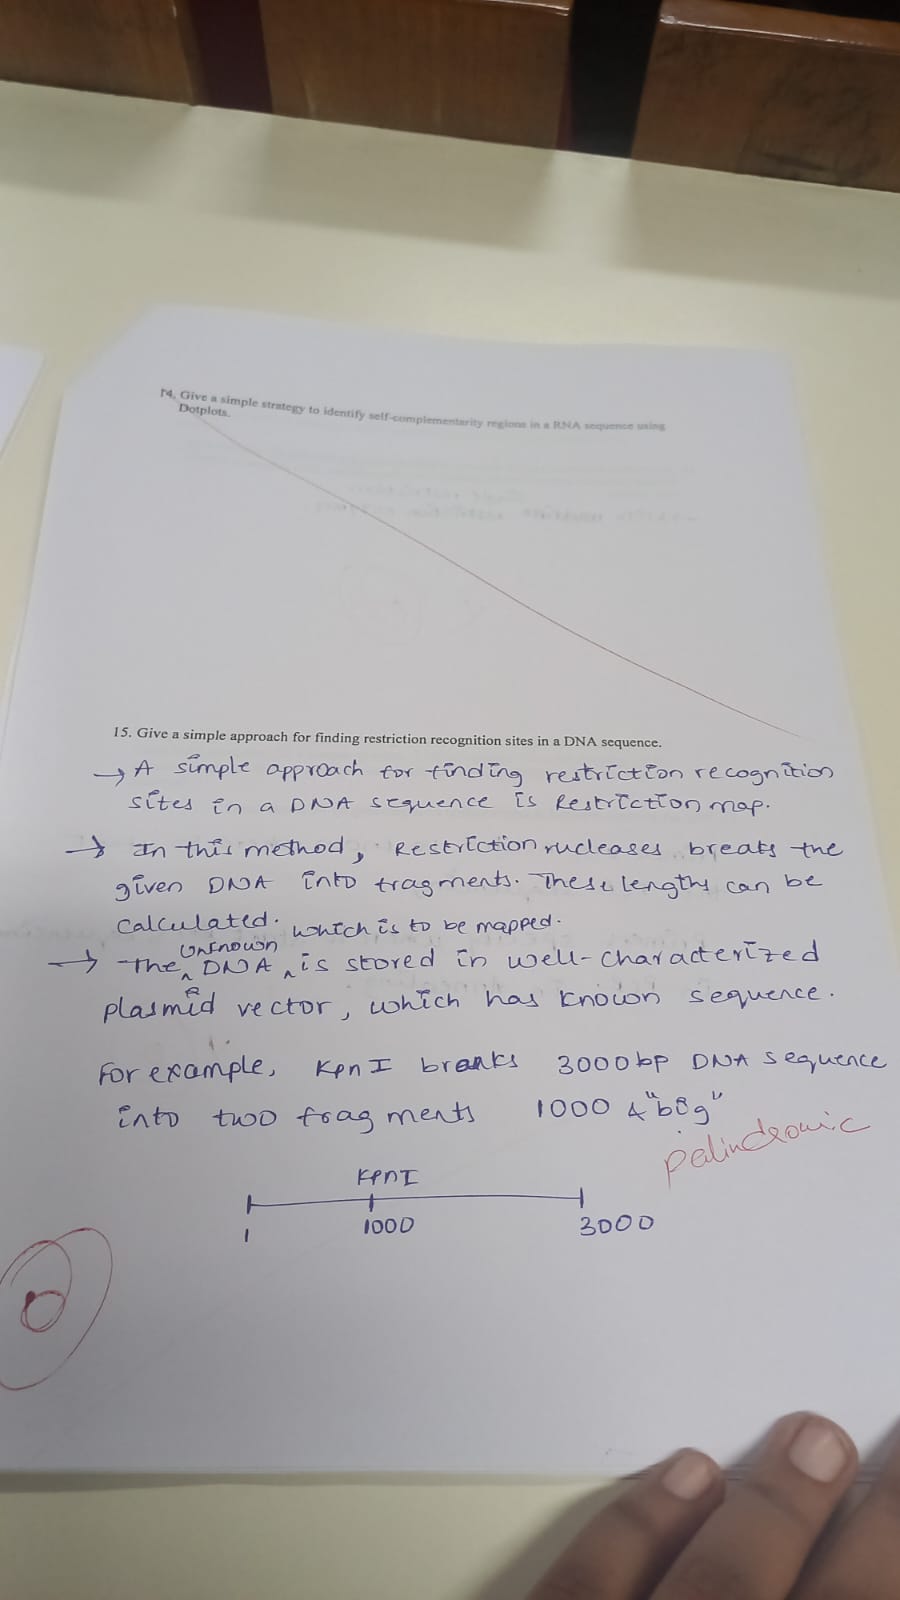 14. Give a simple strategy to identify self-complementarity regions in a RNA sequence using
Dotplots.
15. Give a simple approach for finding restriction recognition sites in a DNA sequence.
→ A simple approach for finding restriction recognition
sites in a DNA sequence is Restriction map.
→ In this method, Restriction nucleases breaks the
given DNA into fragments. These lengths can be
calculated.
→ The unknown DNA which is to be mapped. is stored in well-characterized
plasmid vector, which has known sequence.
For example, KpnI breaks 3000bp DNA sequence
into two fragments 1000 & "big"
palindromic
KpnI
1 1000 3000
0